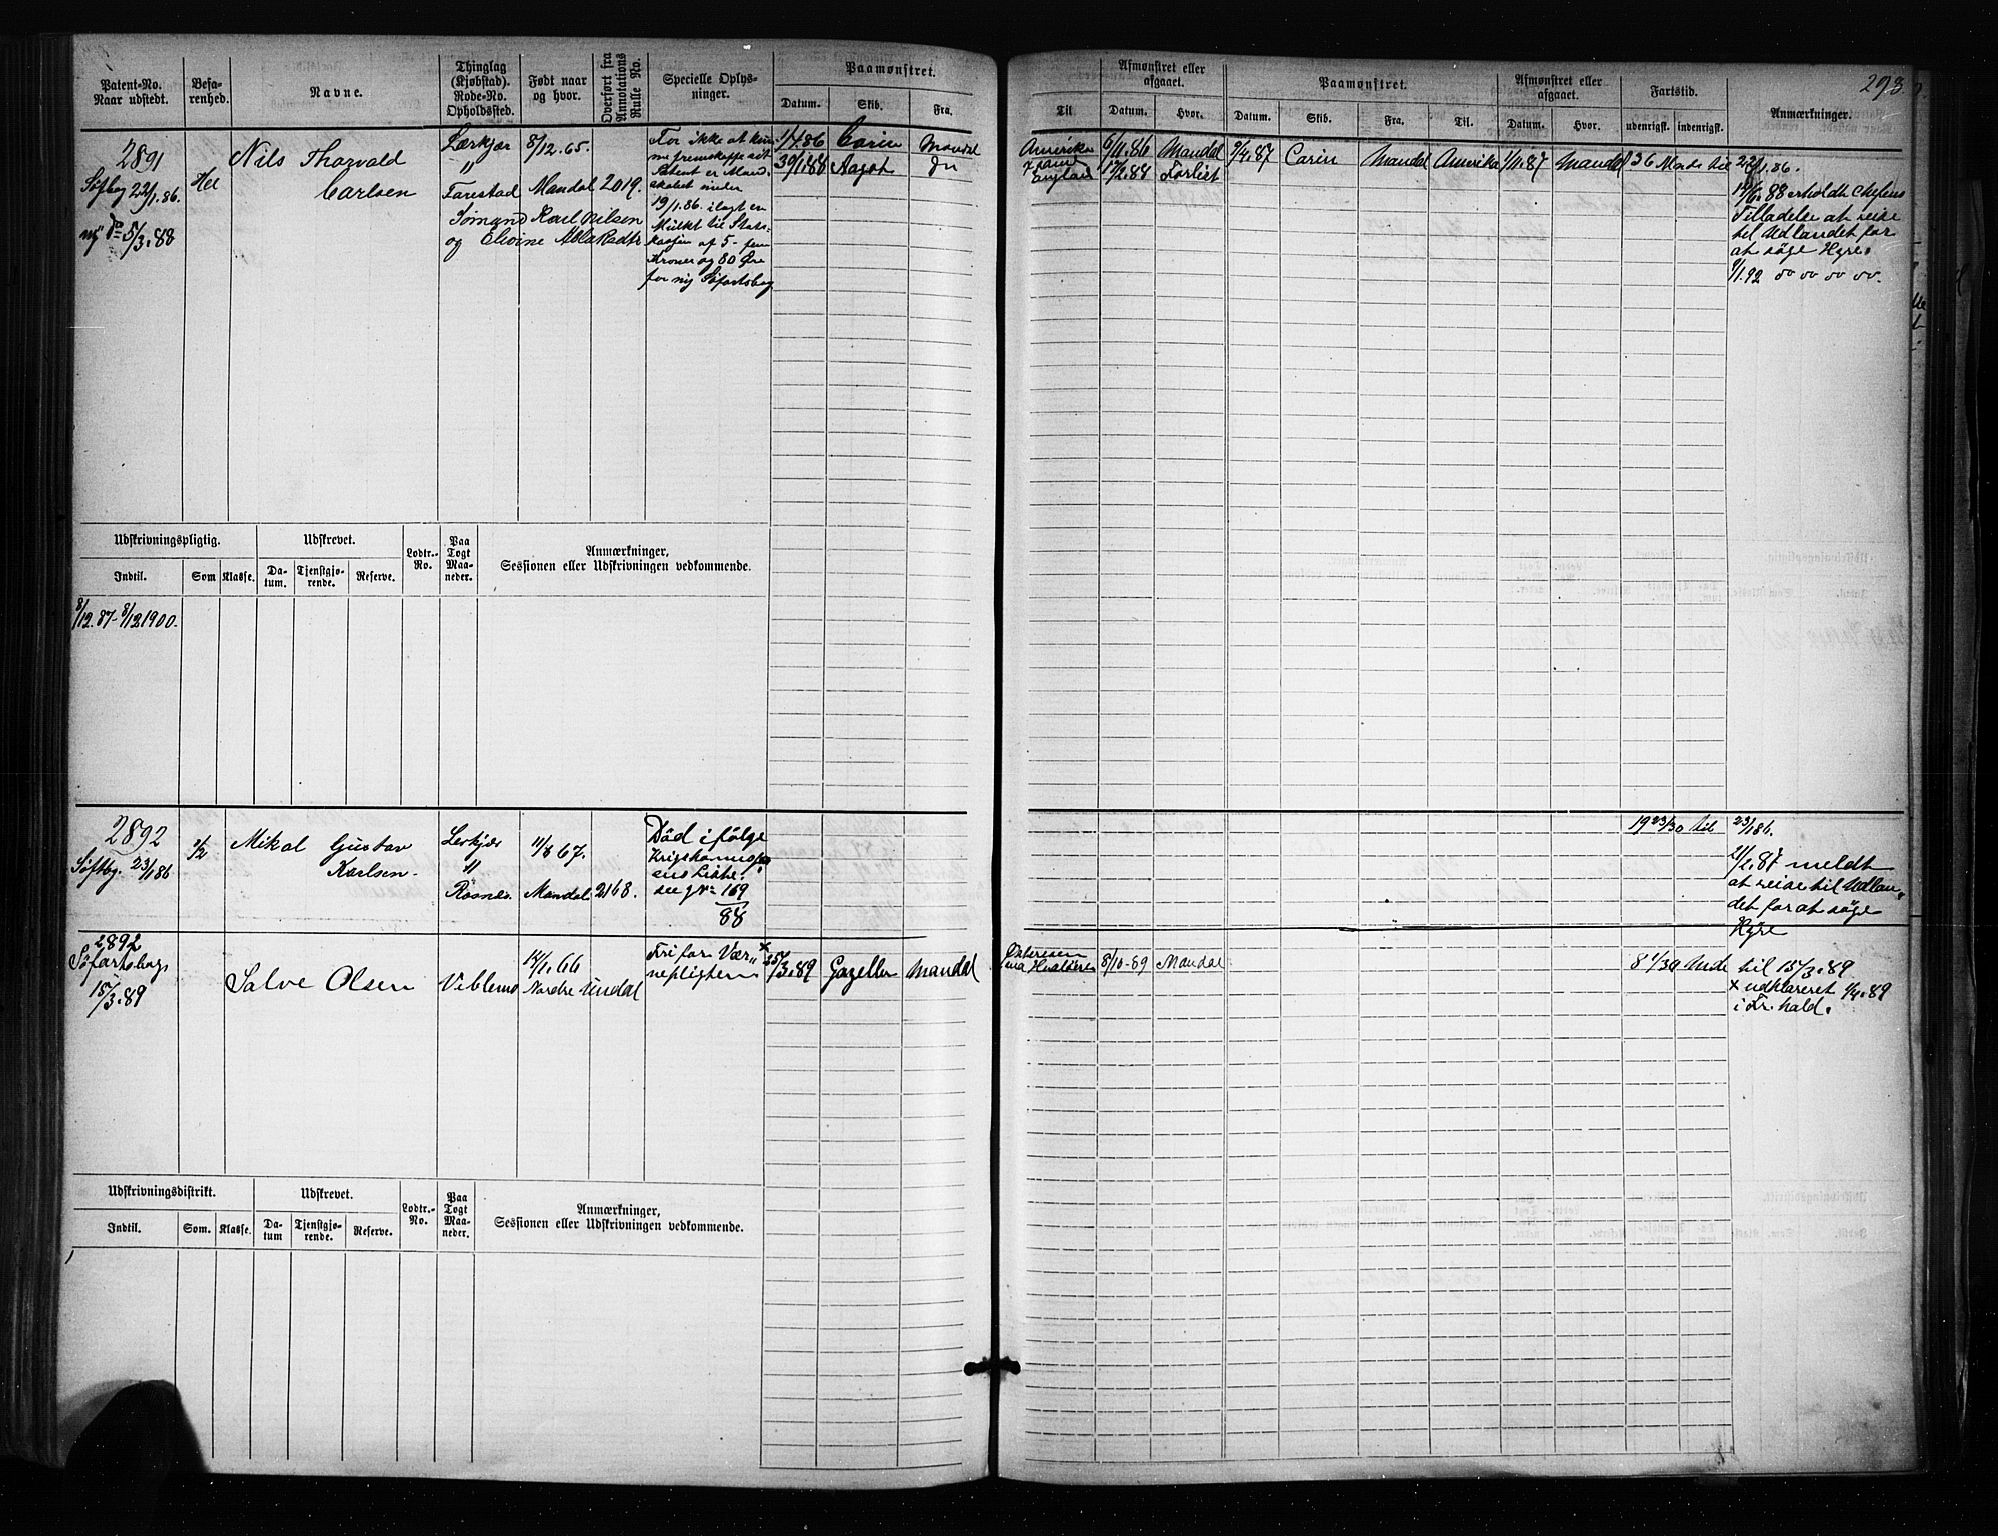 Patent-No. Naar udstedt.
Befarenhed.
Navne.
Thinglag (Kjøbstad). Rode-No. Opholdssted.
Født naar og hvor.
Overført fra Annotations Rulle No.
Specielle Oplysninger.
Paamønstret.
Datum. Skib. Fra.
Til.
Afmønstret eller afgaaet.
Datum. Hvor.
Paamønstret.
Datum. Skib. Fra. Til.
Afmønstret eller afgaaet.
Datum. Hvor.
Fartstid.
udenrigsk. indenrigsk.
Anmærkninger.
293.
2891
Søfbog 22/1.86.
ny do 5/3.88
Hel
Nils Thorvald
Carlsen
Lærkjær
"
Farestad
8/12.65.
Mandal 2019.
Sømand Karl Nilsen
og Elvine
For ikke at kun
ne fremskaffe sit
Patent er Mand
skabet under
19/1.86. ilagt en
Mulkt til Stats-
kassen af 5- fem
Kroner og 80 Øre
for ny Søfartsbog
1/4.86 Carin Mandal
30/1.88 Aagot do
Amerika 6/11.86 Mandal 9/4.87 Carin Mandal Amerika 1/11.87 Mandal 36 Mdr til 22/1.86.
England 17/2.88 Forlist
88 erholdt Chefens
Tilladelse at reise
til Udlandet for
at søge Hyre.
9/1.92 do do do do.
Udskrivningspligtig.
Udskrevet.
Lodtr.-No.
Paa Togt Maaneder.
Anmærkninger,
Sessionen eller Udskrivningen vedkommende.
Indtil. Som Klasse. Datum. Tjenstgjørende. Reserve.
8/12.87- 8/12 1900.
2892
Søftbg. 23/1 86
1/2
Mikal Gustav
Karlsen.
Lerkjær
"
Rosnes.
11/8 67.
Mandal. 2168.
Død i følge
see g No 169
88
19 23/30 til 23/1 86.
21/2.87 meldt
at reise til Udlan
det for at søge
Hyre
2892
Søfartsbog
15/3.89
Salve Olsen
Viblemo
14/1.66
Nordre Undal
Fri for Vær
nepligten
x 15/3.89 Gazellen Mandal
8/10-89 Mandal
8 1/30 Mdr til 15/3.89
x udklareret 1/4.89
i Fr.hald.
Udskrivningsdistrikt.
Udskrevet.
Lodtr.-No.
Paa Togt Maaneder.
Anmærkninger,
Sessionen eller Udskrivningen vedkommende.
Indtil. Som. Klasse. Datum Tjenstgjørende. Reserve.